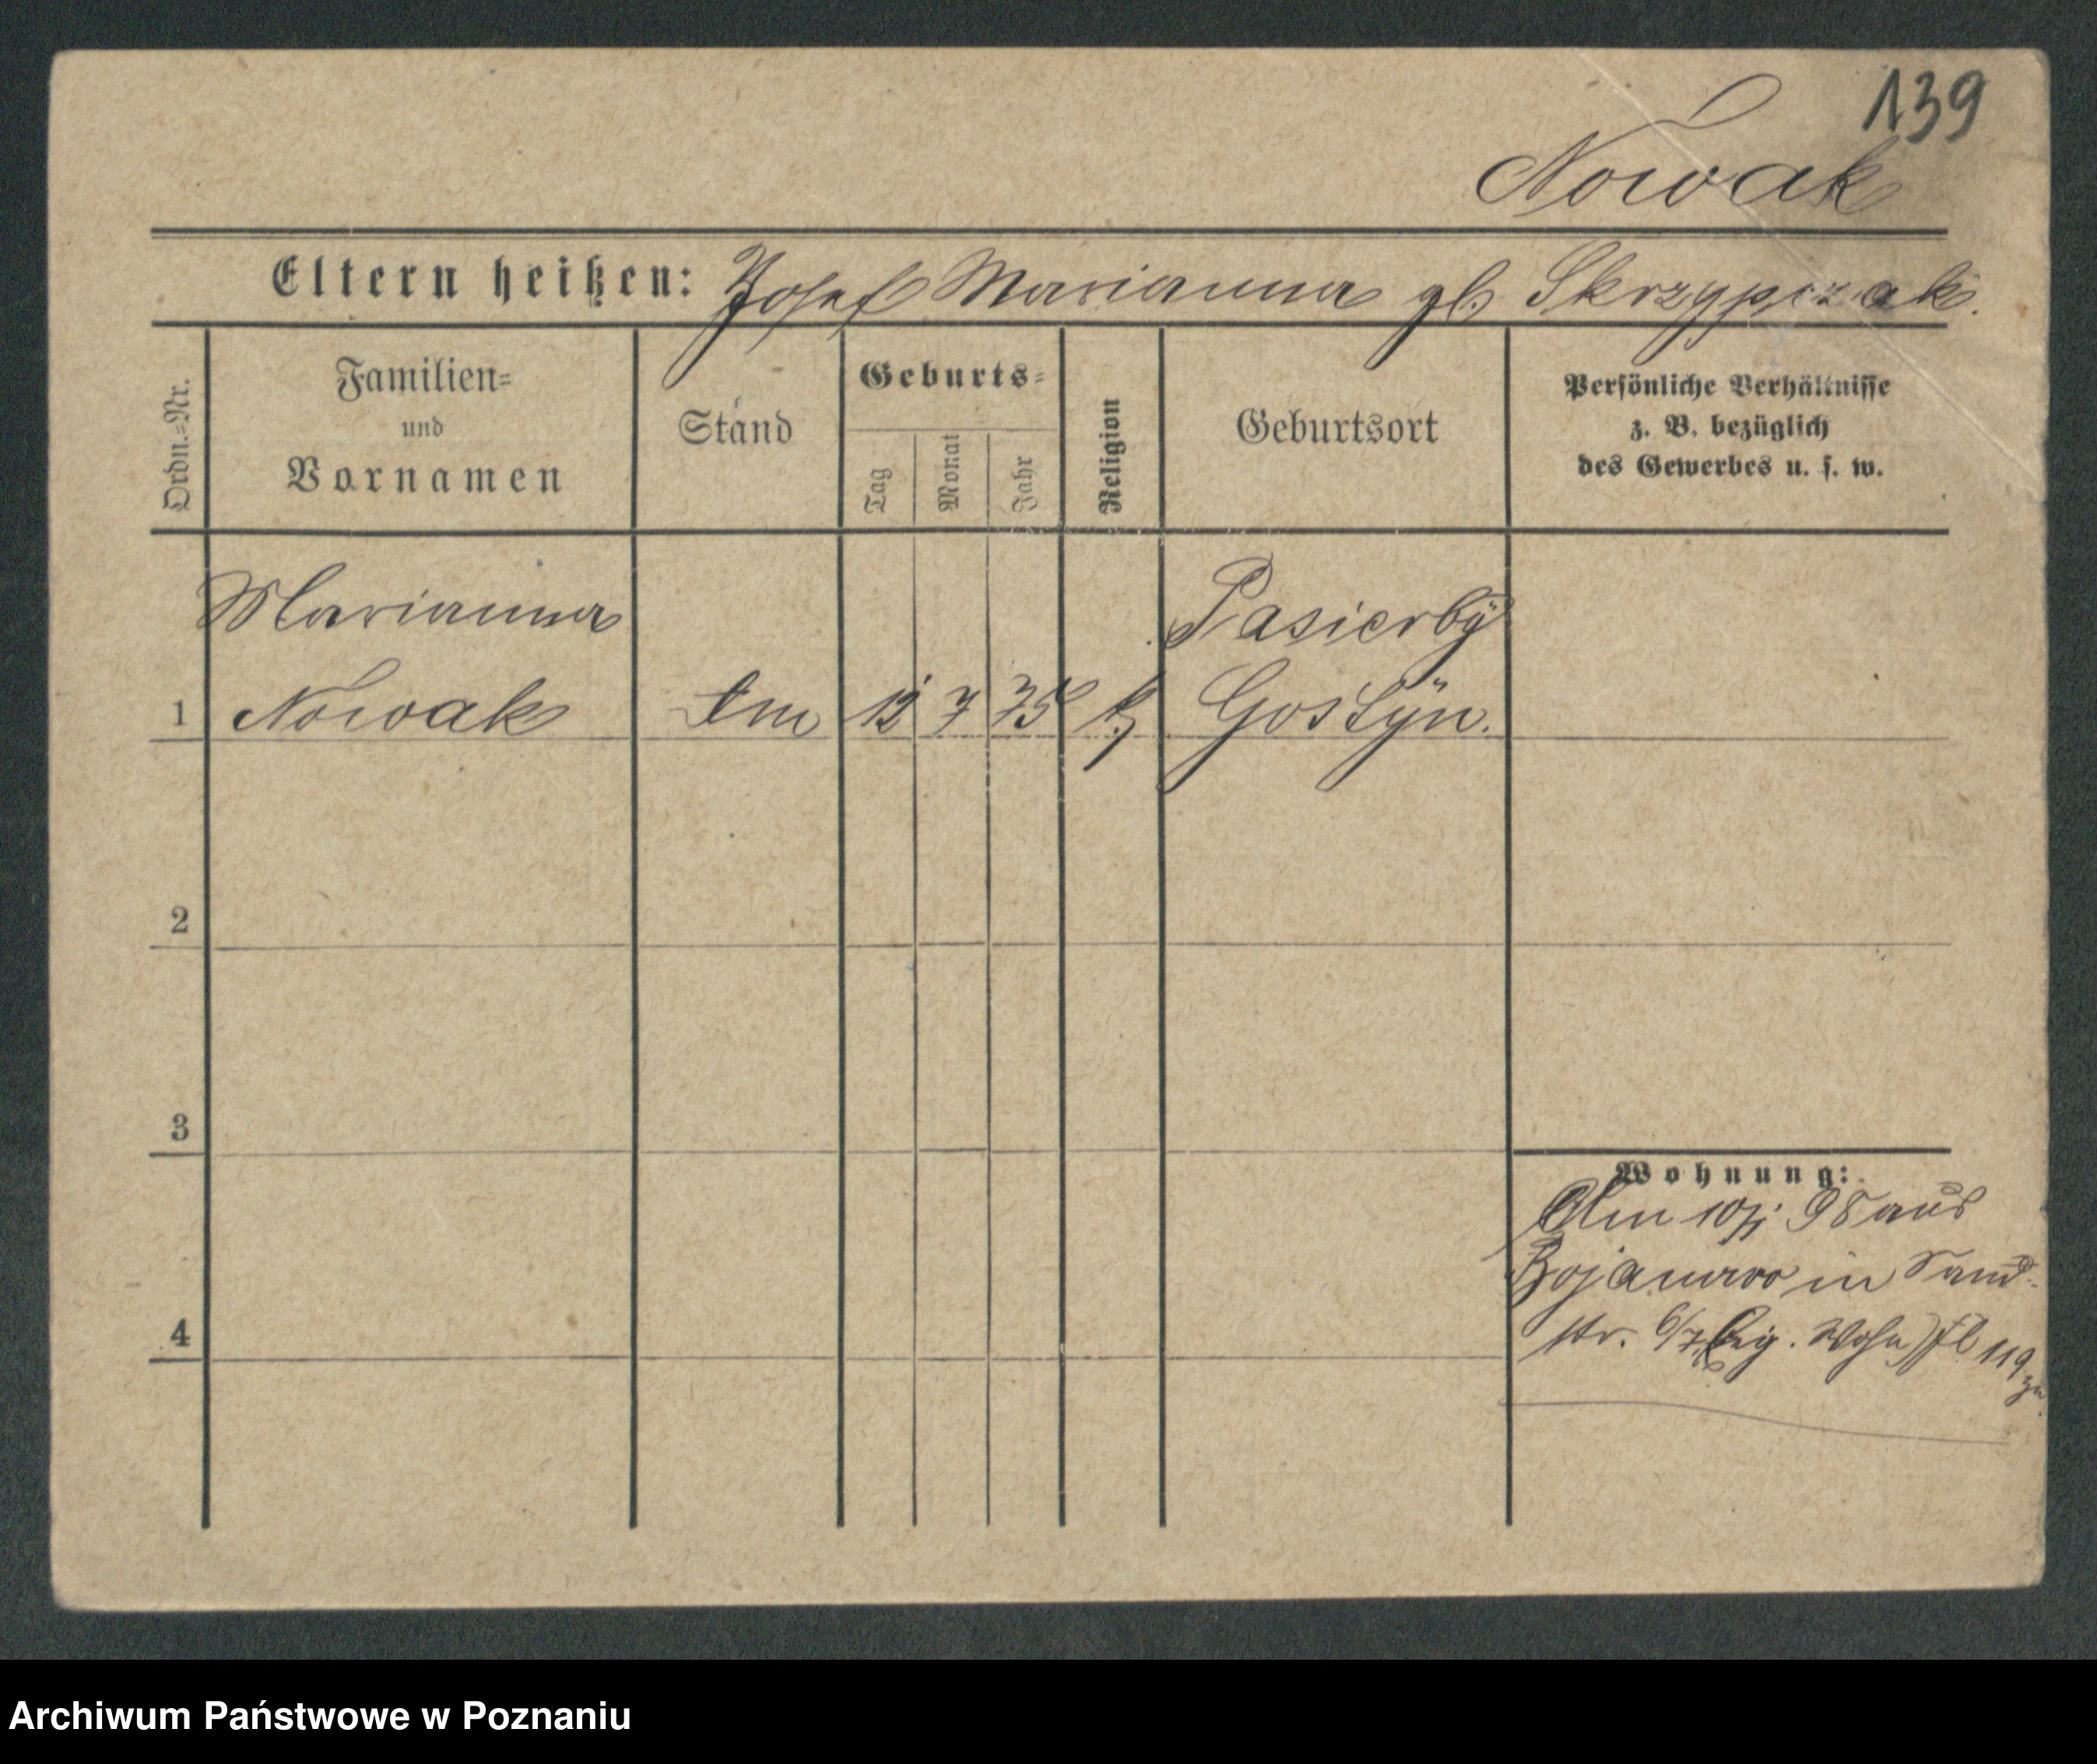 139
Nowak
Eltern heißen: Josef Marianna gb. Skrzypczak.
Ordn.-Nr.
Familien-
und
Vornamen
Stand
Geburts-
Tag
Monat
Jahr
Religion
Geburtsort
Persönliche Verhältnisse
z. B. bezüglich
des Gewerbes u. s. w.
Marianna
Pasierbÿ
1 Nowak 12 7 75 k Gostÿn.
2
3
Wohnung:
Am 10/1 98 aus
Bojanowo in Sand-
4
str. 6/7 Wohn) 119
zu.
Archiwum Państwowe w Poznaniu